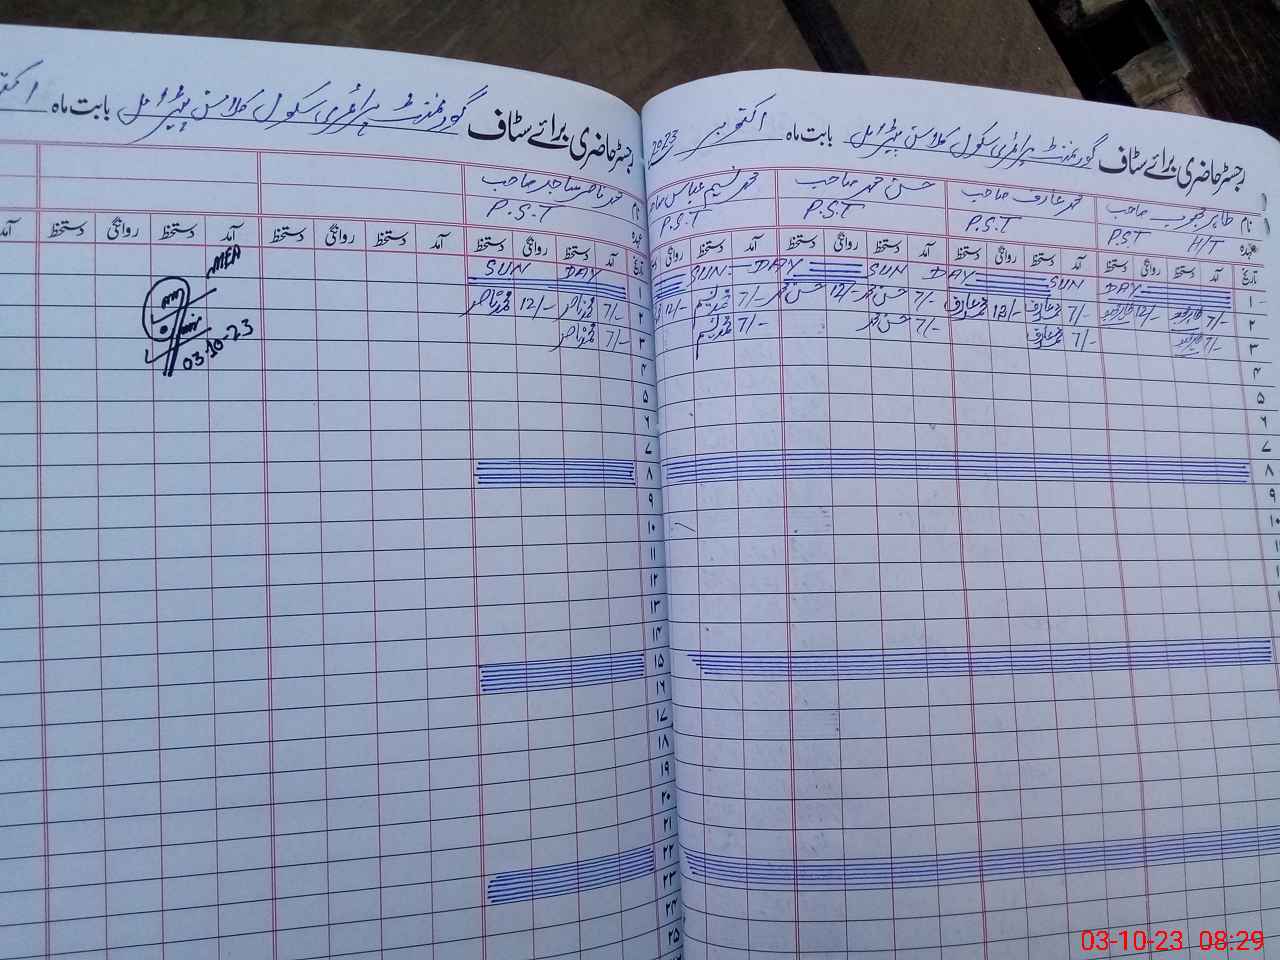 رجسٹر حاضری برائے سٹاف گورنمنٹ پرائمری سکول کلاسن بابت ماہ اکتوبر 2023
نام طاہر صاحب محمد عارف صاحب حسن محمد صاحب محمد نسیم عباس
عہدہ P.S.T H/T P.S.T P.S.T P.S.T
تاریخ آمد دستخط روانگی دستخط آمد دستخط روانگی دستخط آمد دستخط روانگی دستخط آمد دستخط روانگی
۱ SUN DAY SUN DAY SUN DAY
۲ 7/- 12/- 7/- محمد عارف 12/- محمد عارف 7/- حسن محمد 12/- حسن محمد 7/- 12/-
۳ 7/- 7/- محمد عارف 7/- حسن محمد 7/-
۴
۵
۶
۷
۸
۹
۱۰
رجسٹر حاضری برائے سٹاف گورنمنٹ پرائمری سکول کلاسن بابت ماہ
نام محمد ناصر ساجد صاحب
عہدہ P.S.T
تاریخ آمد دستخط روانگی دستخط آمد دستخط روانگی دستخط آمد دستخط روانگی دستخط آمد
۱ SUN DAY
۲ 7/- محمد ناصر 12/- محمد ناصر
۳ 7/- محمد ناصر
MEA
03-10-23
۴
۵
۶
۷
۸
۹
۱۰
۱۱
۱۲
۱۳
۱۴
۱۵
۱۶
۱۷
۱۸
۱۹
۲۰
۲۱
۲۲
۲۳
۲۴
۲۵
03-10-23 08:29